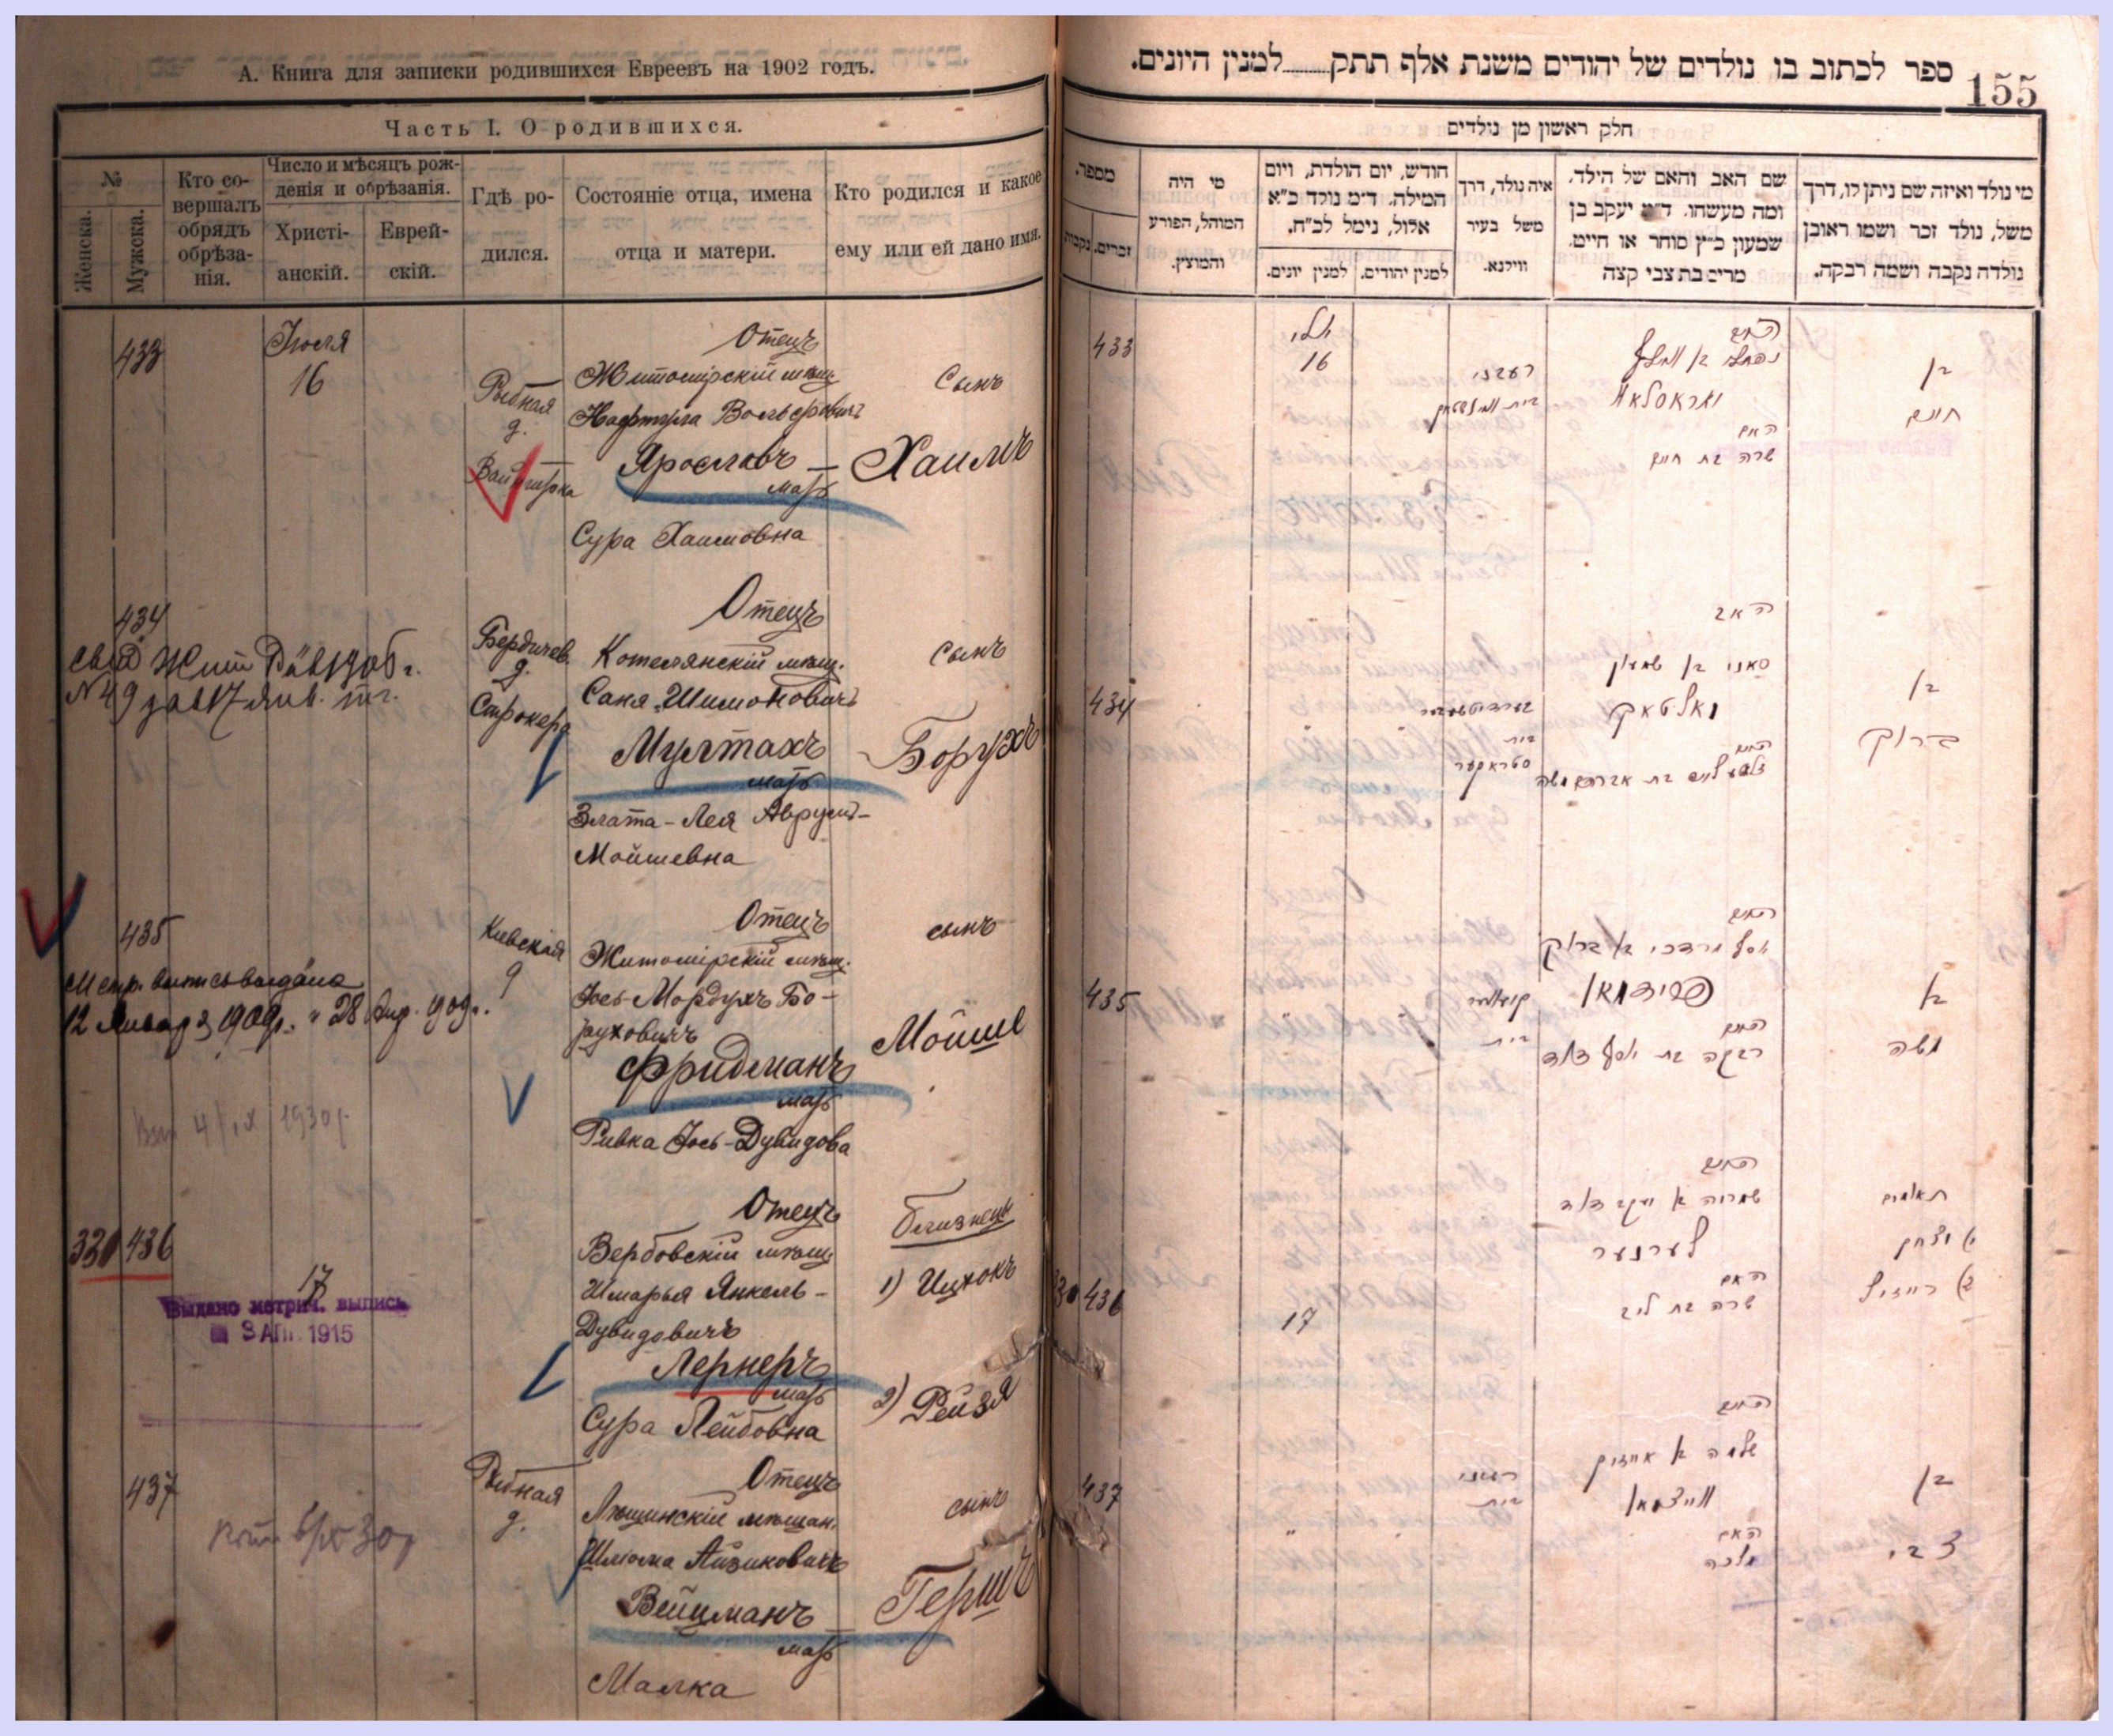 А. Книга для записки родившихся Евреевъ на 1902 годъ.
Часть I. О родившихся.
№
Женска.
Мужска.
Кто со-
вершалъ
обрядъ
обрѣза-
нія.
Число и мѣсяцъ рож-
денія и обрѣзанія.
Христі-
анскій.
Еврей-
скій.
Гдѣ ро-
дился.
Состояніе отца, имена
отца и матери.
Кто родился и какое
ему или ей дано имя.
433
Іюля
16
Рыбная
д.
Отецъ
Житомірскій мѣщ.
Нафтула Вольфовичъ
Ярославъ
мать
Сура Хаимовна
Сынъ
Хаимъ
434
№49
Бердичев.
д.
Строкера
Отецъ
Котелянскій мѣщ.
Саня Шимоновичъ
Мултахъ
мать
Злата-Лея Аврумъ-
Мойшевна
сынъ
Борухъ
435
Метр. выпись выдана
12 Января 1909г.
Кіевская
д
Отецъ
Житомірскій мѣщ.
Іось-Мордухъ Бо-
руховичъ
Фридманъ
мать
Ривка Іось-Дувидова
сынъ
Мойше
330 436
17
Выдано метрич. выпись
3 АПР. 1915
Отецъ
Вербовскій мѣщ.
Шмарья Янкель-
Дувидовичъ
Лернеръ
мать
Сура Лейбовна
близнецы
1) Ицхокъ
2) Рейзя
437
Рыбная
д.
Отецъ
мѣщан.
Шлиома Айзиковичъ
Вейцманъ
мать
Малка
сынъ
Гершъ
ספר לכתוב בו נולדים של יהודים משנת אלף תתק למנין היונים.
155
חלק ראשון מן נולדים
מספר.
נקבות
זכרים.
מי היה
המוהל, הפורע
והמוצץ.
חודש, יום הולדת, ויום
המילה. ד״מ נולד כ״א
אלול, נימל לכ״ח.
למנין יונים.
למנין יהודים.
איה נולד, דרך
משל בעיר
ווילנא.
שם האב והאם של הילד.
ומה מעשהו. ד״מ יעקב בן
שמעון כ״ץ סוחר או חייט.
מרים בת צבי קצה
מי נולד ואיזה שם ניתן לו, דרך
משל, נולד זכר ושמו ראובן
נולדה נקבה ושמה רבקה.
433
יולי
16
האם
שרה בת חיים
בן
חיים
434
האב
סאני בן שמעון
מאלטאך
בית
סטראקער
בן
ברוך
435
יוסף מרדכי בן ברוך
פרידמאן
בית
רבקה בת יוסף דוד
בן
משה
330 436
17
לערנער
האם
שרה בת ליב
תאומים
א) יצחק
ב) רייזיל
437
"
בית
שלמה בן אייזיק
ווייצמאן
האם
מלכה
בן
צבי